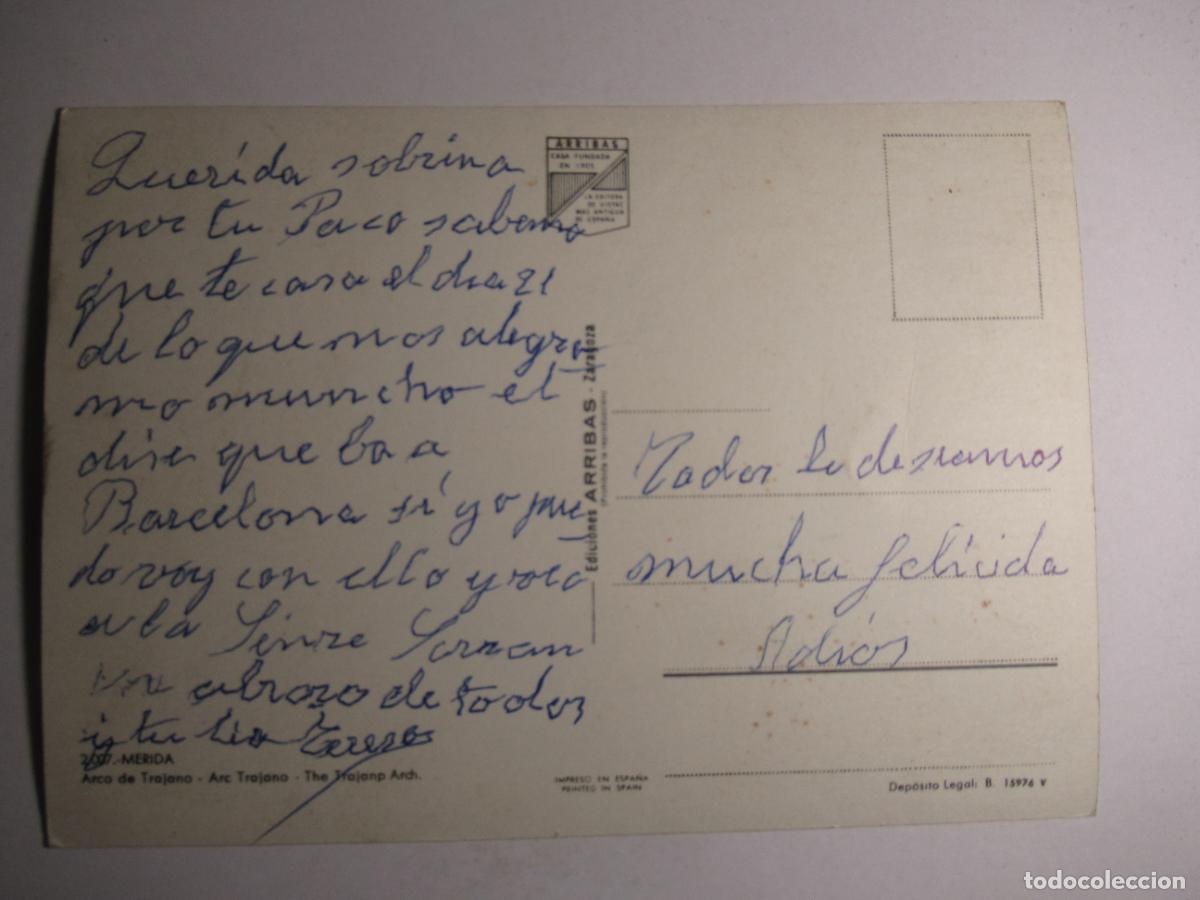 Querida sobrina
por tu Paco sabemo
que te casa el dia 21
de lo que nos alegra
mo muncho el
dise que ba a
Barcelona si yo pue
do voy con ello y
a la
abrazo de todos
y tu tia Tereza
2007.-MERIDA
Arco de Trajano - Arc Trajano - The Trajanp Arch.
ARRIBAS
CASA FUNDADA
EN 1905
LA EDITORA
DE VISTAS
MAS ANTIGUA
DE ESPAÑA
Ediciones ARRIBAS - Zaragoza
(Prohibida la reproducción)
Todos le deseamos
mucha felicida
Adiós
IMPRESO EN ESPAÑA
PRINTED IN SPAIN
Depósito Legal: B. 15976 V
todocoleccion